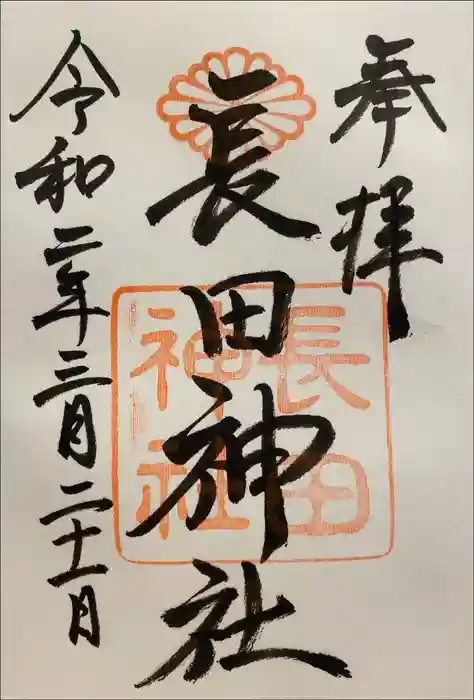 奉拝
長田神社
長田
神社
令和二年三月二十一日